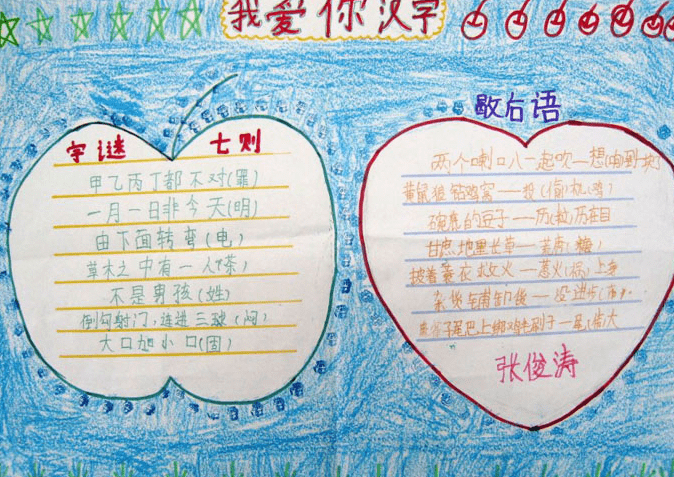 我爱你汉字
字谜 七则
甲乙丙丁都不对(罪)
一月一日非今天(明)
由下面转弯(电)
草木之中有一人(茶)
不是男孩(姓)
倒勾射门,连进三球(闷)
大口加小口(固)
歇后语
两个喇叭一起吹—想(响)到一块
黄鼠狼钻鸡窝——投(偷)机(鸡)
碗底的豆子——历(粒)历在目
甘蔗地里长草——荒唐(糖)
披着蓑衣救火——惹火(祸)上身
杂货铺卸货——没进步(布)
尾巴上绑鸡毛刷子一
张俊涛